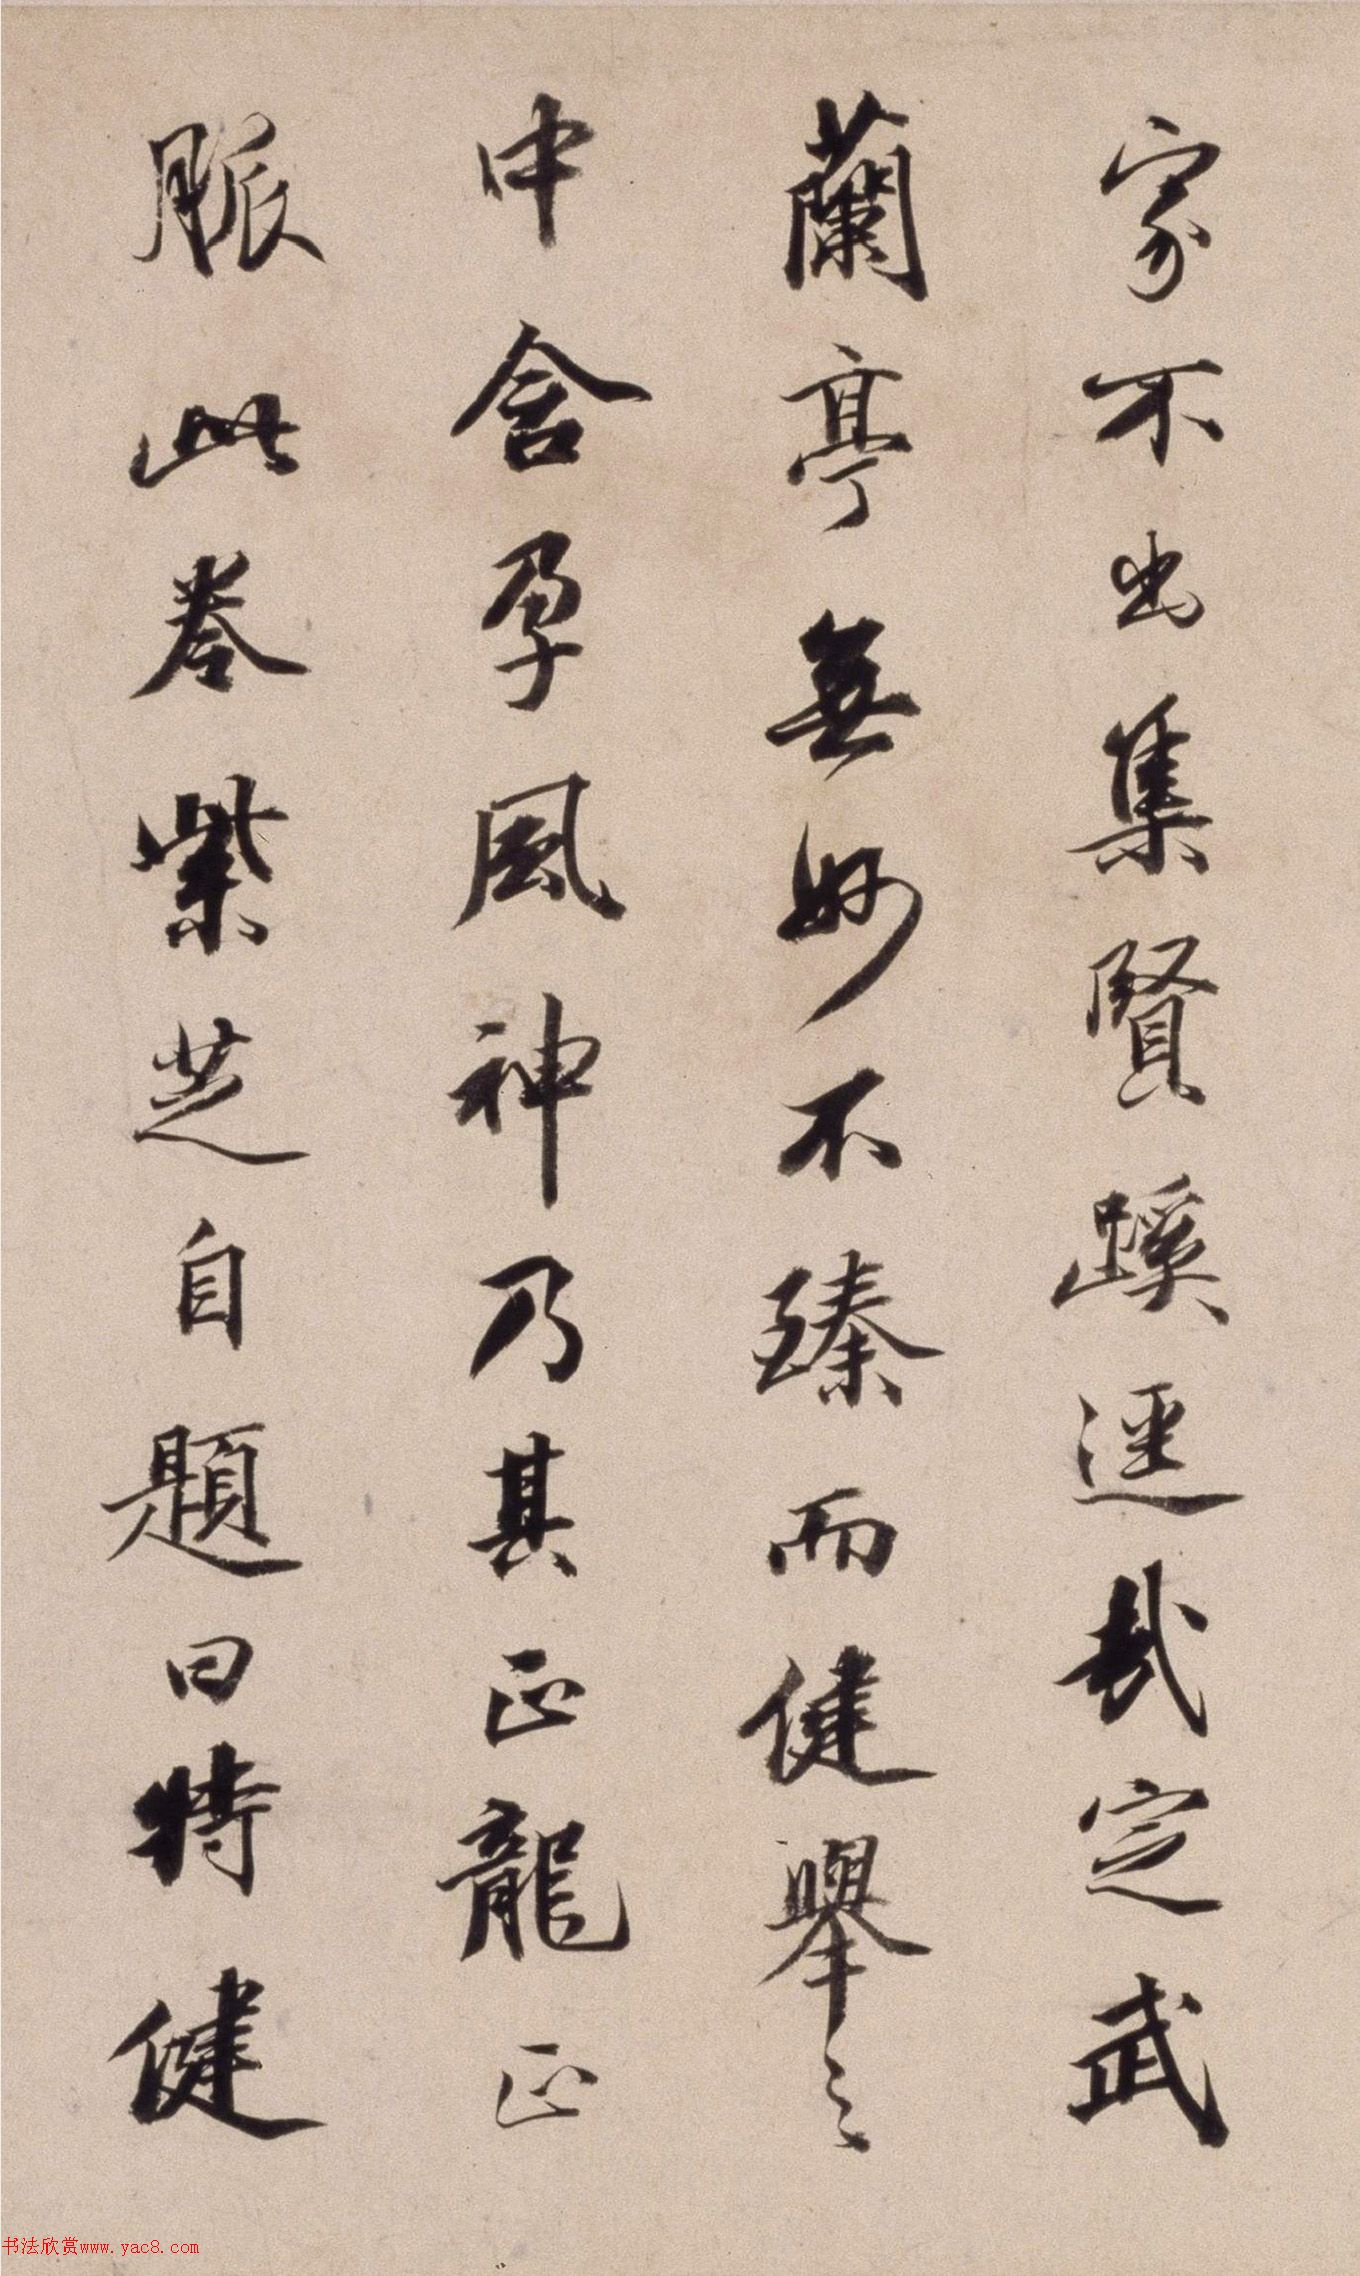 家不出集賢蹊逕哉定武
蘭亭無妙不臻而健舉之
中含孕風神乃其正龍正
脈此卷紫芝自題曰特健
书法欣赏www.yac8.com